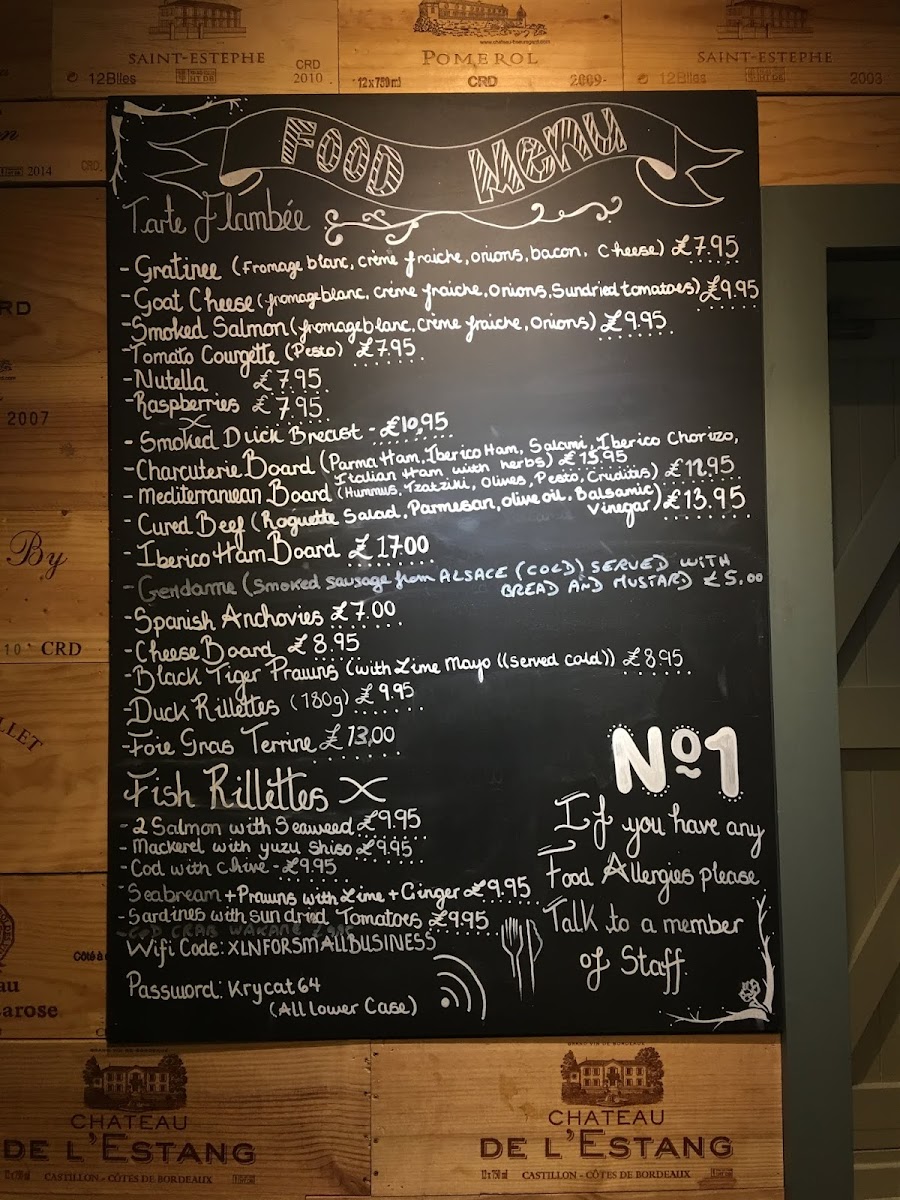 SAINT-ESTEPHE
12Blles
CRD
2010
POMEROL
12x750ml
CRD
2009
SAINT-ESTEPHE
12Blles
2003
2014
CRD
2007
By
CRD
LLET
Côté à
au
Larose
FOOD Menu
Tarte Flambée
- Gratinee (Fromage blanc, crème fraiche, onions, bacon, Cheese) £7.95
- Goat Cheese (fromage blanc, crème fraiche, Onions, Sundried tomatoes) £9.95
- Smoked Salmon (fromage blanc, crème fraiche, Onions) £9.95
- Tomato Courgette (Pesto) £7.95
- Nutella £7.95
- Raspberries £7.95
- Smoked Duck Breast - £10,95
- Charcuterie Board (Parma Ham, Iberico Ham, Salami, Iberico Chorizo,
Italian Ham with herbs) £15.95
- Mediterranean Board (Hummus, Tzatziki, Olives, Pesto, Cruditis) £12.95
- Cured Beef (Roguette Salad, Parmesan, olive oil, Balsamic
Vinegar) £13.95
- Iberico Ham Board £17.00
- Gendarme (Smoked sausage from ALSACE (COLD) SERVED WITH
BREAD AND MUSTARD £5.00
- Spanish Anchovies £7.00
- Cheese Board £8.95
- Black Tiger Prawns (with Lime Mayo ((served cold)) £8.95
- Duck Rillettes (180g) £9.95
- Foie Gras Terrine £13,00
Fish Rillettes
- 2 Salmon with Seaweed £9.95
- Mackerel with yuzu Shiso £9.95
- Cod with Chive - £9.95
- Seabream + Prawns with Lime + Ginger £9.95
- Sardines with sun dried Tomatoes £9.95
- COD CRAB WAKAME
Wifi Code: XLNFORSMALLBUSINESS
Password: Krycat64
(All lower Case)
Nº1
If you have any
Food Allergies please
Talk to a member
of Staff.
CHATEAU
DE L'ESTANG
CASTILLON - CÔTES DE BORDEAUX
CHATEAU
DE L'ESTANG
CASTILLON - CÔTES DE BORDEAUX